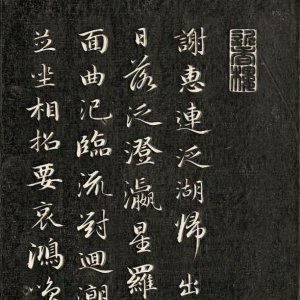 謝惠連泛湖歸出
日落泛澄瀛星羅
面曲汜臨流對迴潮
竝坐相招要哀鴻鳴